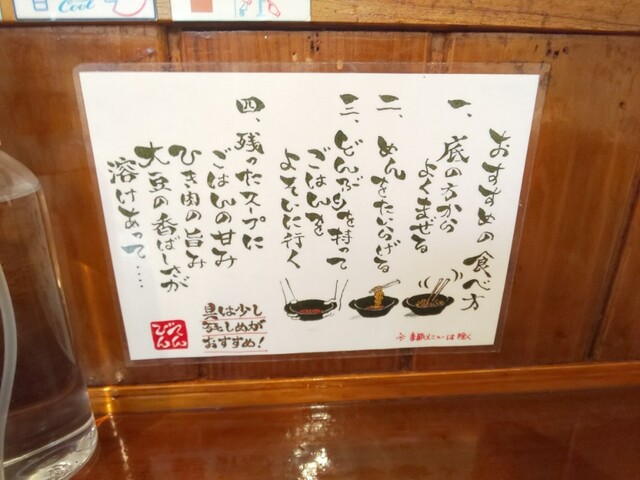 おすすめの食べ方
一、底の方から
よくまぜる
二、めんをたいらげる
三、どんぶりを持って
ごはんを
よそいに行く
四、残ったスープに
ごはんの甘み
ひき肉の旨み
大豆の香ばしさが
溶けあって……
具は少し
残しめが
おすすめ！
※季節メニューは除く
Cool